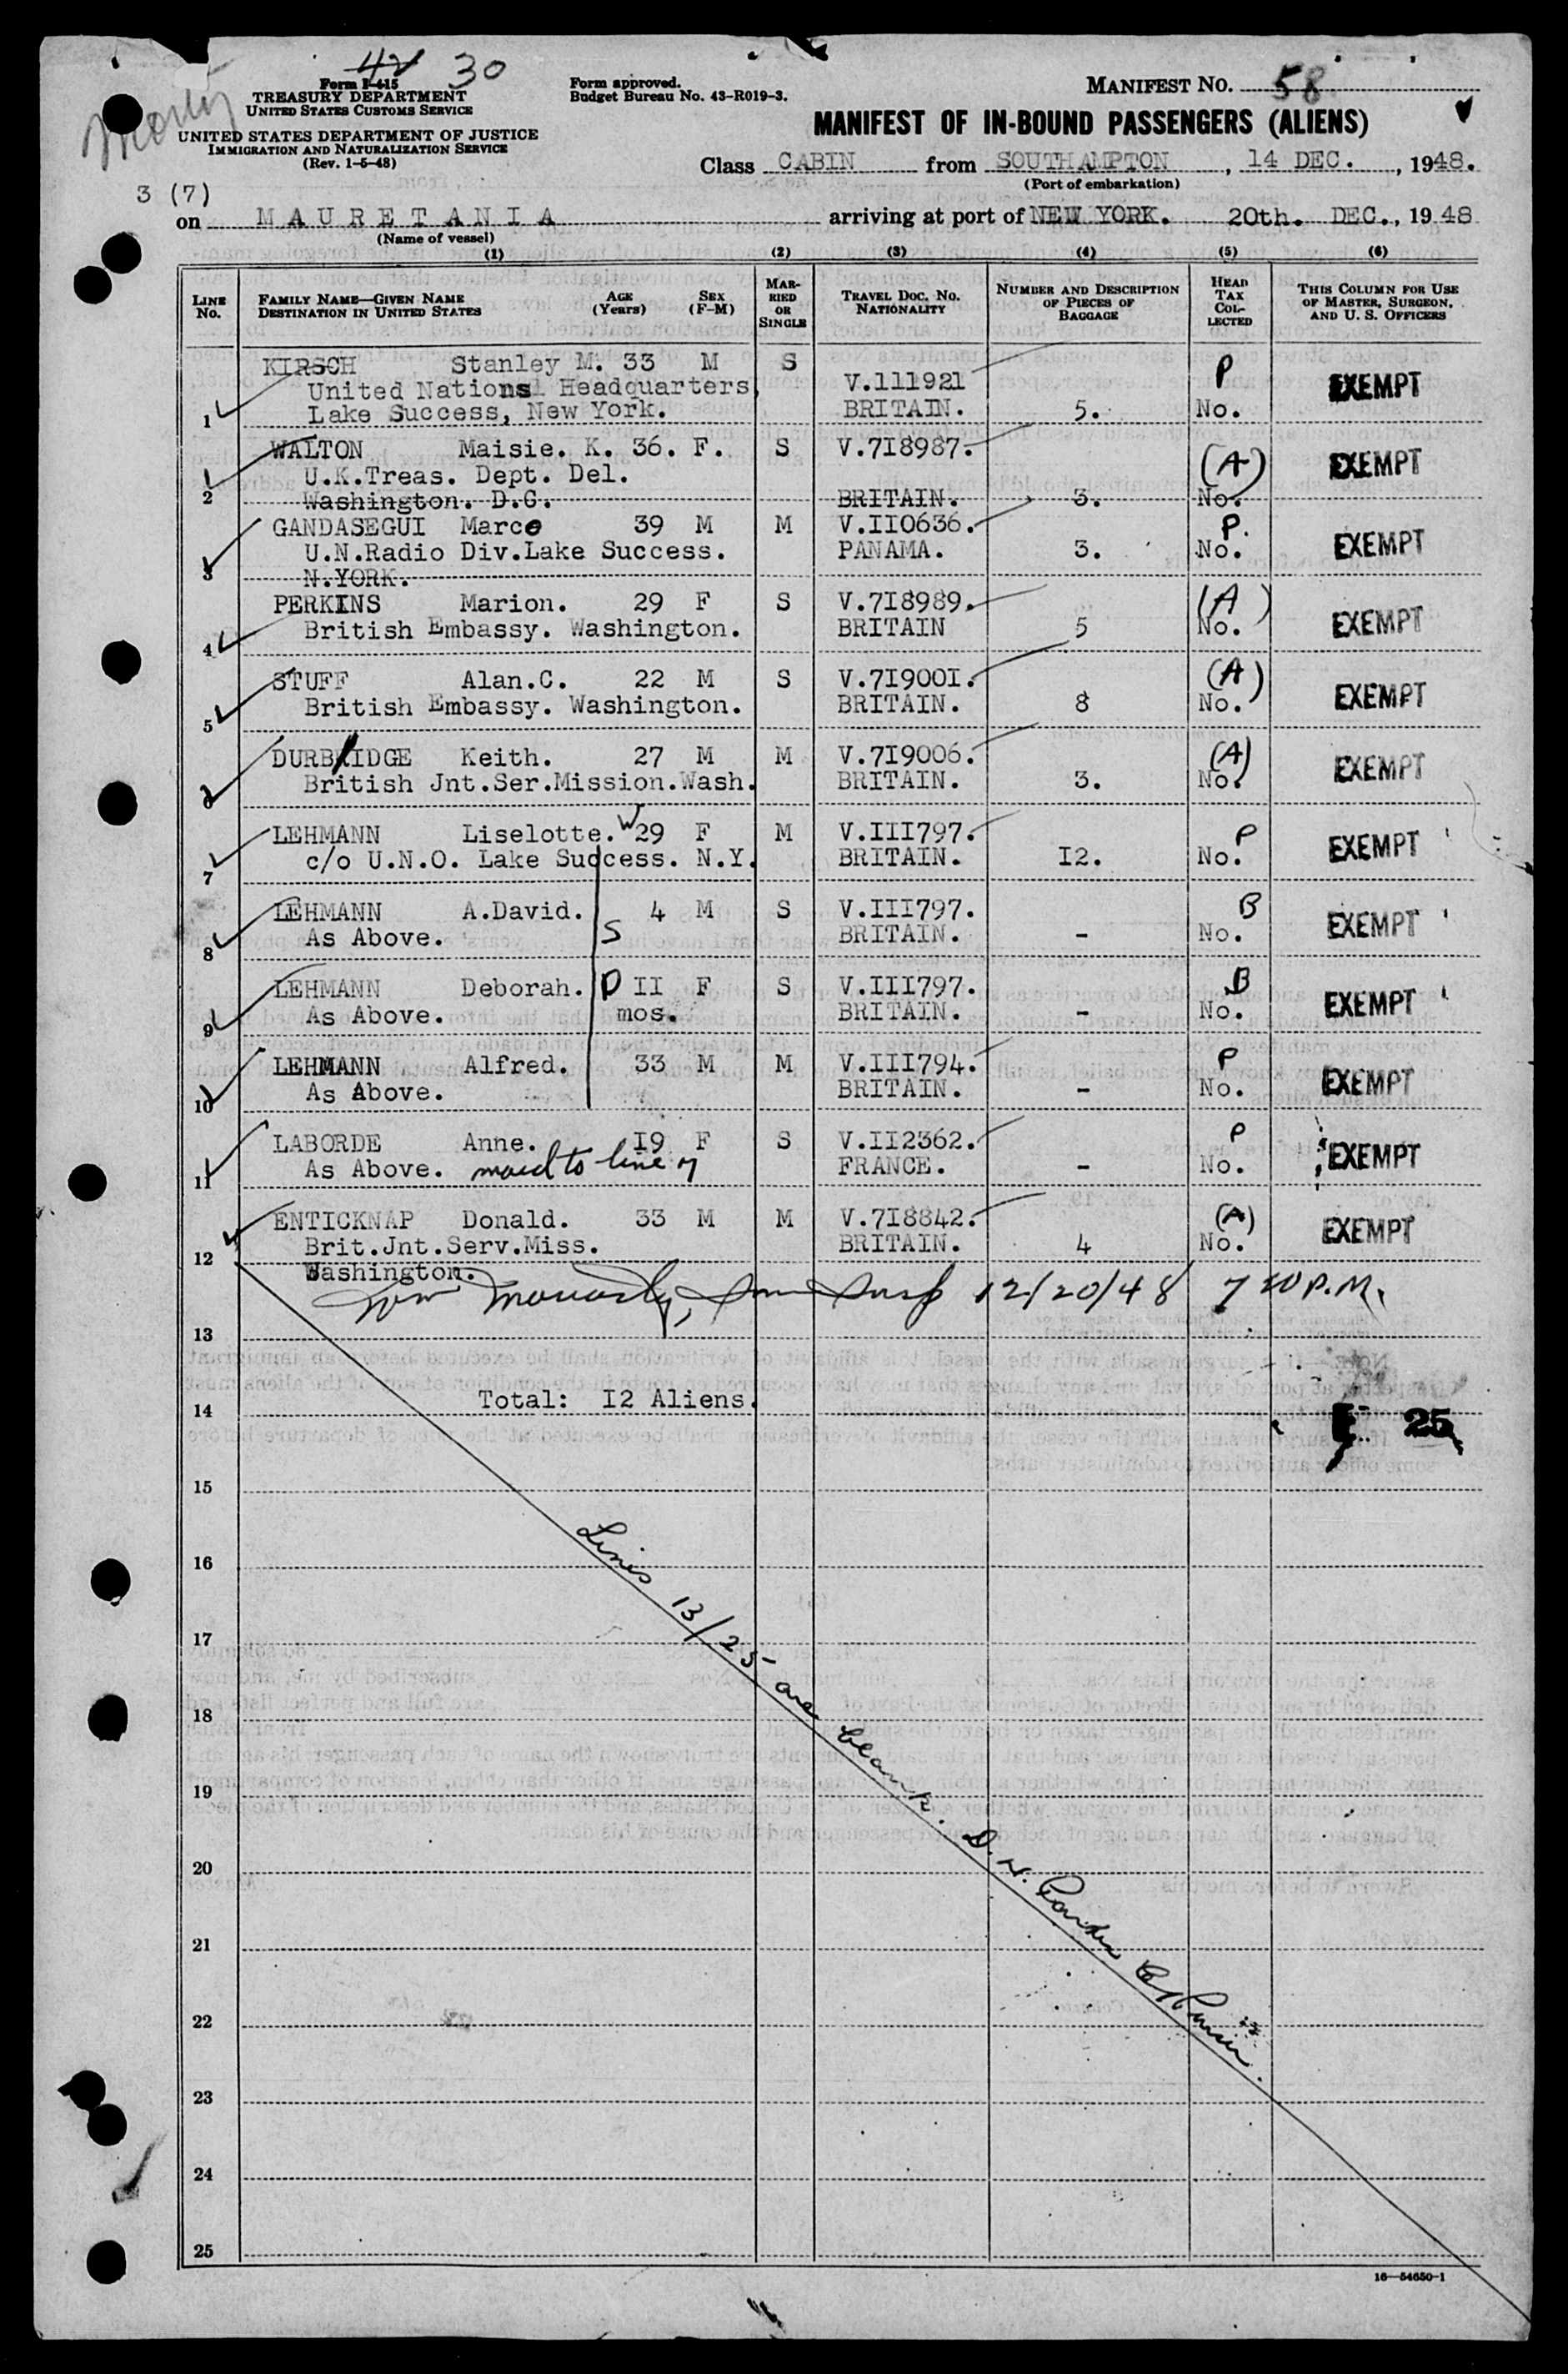 42 30
Form I-415
TREASURY DEPARTMENT
UNITED STATES CUSTOMS SERVICE
UNITED STATES DEPARTMENT OF JUSTICE
IMMIGRATION AND NATURALIZATION SERVICE
(Rev. 1-5-48)
Form approved.
Budget Bureau No. 43-R019-3.
MANIFEST NO. 58
MANIFEST OF IN-BOUND PASSENGERS (ALIENS)
Class CABIN from SOUTHAMPTON, 14 DEC., 1948.
(Port of embarkation)
3 (7)
on MAURETANIA arriving at port of NEW YORK. 20th. DEC., 1948
(Name of vessel)
(1) (2) (3) (4) (5) (6)
LINE No. FAMILY NAME—GIVEN NAME DESTINATION IN UNITED STATES AGE (Years) SEX (F-M) MARRIED OR SINGLE TRAVEL DOC. NO. NATIONALITY NUMBER AND DESCRIPTION OF PIECES OF BAGGAGE HEAD TAX COLLECTED THIS COLUMN FOR USE OF MASTER, SURGEON, AND U. S. OFFICERS
KIRSCH Stanley M. 33 M S V.111921 P EXEMPT
United Nations Headquarters,
1 Lake Success, New York. BRITAIN. 5. No.
WALTON Maisie. K. 36. F. S V.7I8987. (A) EXEMPT
U.K.Treas. Dept. Del.
2 Washington. D.C. BRITAIN. 3. No.
GANDASEGUI Marco 39 M M V.II0636. P. EXEMPT
U.N.Radio Div.Lake Success. PANAMA. 3. No.
3 N.YORK.
PERKINS Marion. 29 F S V.7I8989. (A) EXEMPT
4 British Embassy. Washington. BRITAIN 5 No.
STUFF Alan.C. 22 M S V.7I900I. (A) EXEMPT
5 British Embassy. Washington. BRITAIN. 8 No.
DURBRIDGE Keith. 27 M M V.7I9006. (A) EXEMPT
6 British Jnt.Ser.Mission.Wash. BRITAIN. 3. No.
LEHMANN Liselotte. W 29 F M V.III797. P EXEMPT
7 c/o U.N.O. Lake Success. N.Y. BRITAIN. I2. No.
LEHMANN A.David. 4 M S V.III797. B EXEMPT
8 As Above. S BRITAIN. - No.
LEHMANN Deborah. D II F S V.III797. B EXEMPT
9 As Above. mos. BRITAIN. - No.
LEHMANN Alfred. 33 M M V.III794. P EXEMPT
10 As Above. BRITAIN. - No.
LABORDE Anne. I9 F S V.II2362. P EXEMPT
11 As Above. maid to line 7 FRANCE. - No.
ENTICKNAP Donald. 33 M M V.7I8842. (A) EXEMPT
12 Brit.Jnt.Serv.Miss. BRITAIN. 4 No.
Washington.
12/20/48 7 20 P.M.
13
Total: I2 Aliens.
14
25
15
16
Lines 13/25 are blank. D.H.
17
18
19
20
21
22
23
24
25
16—54650-1